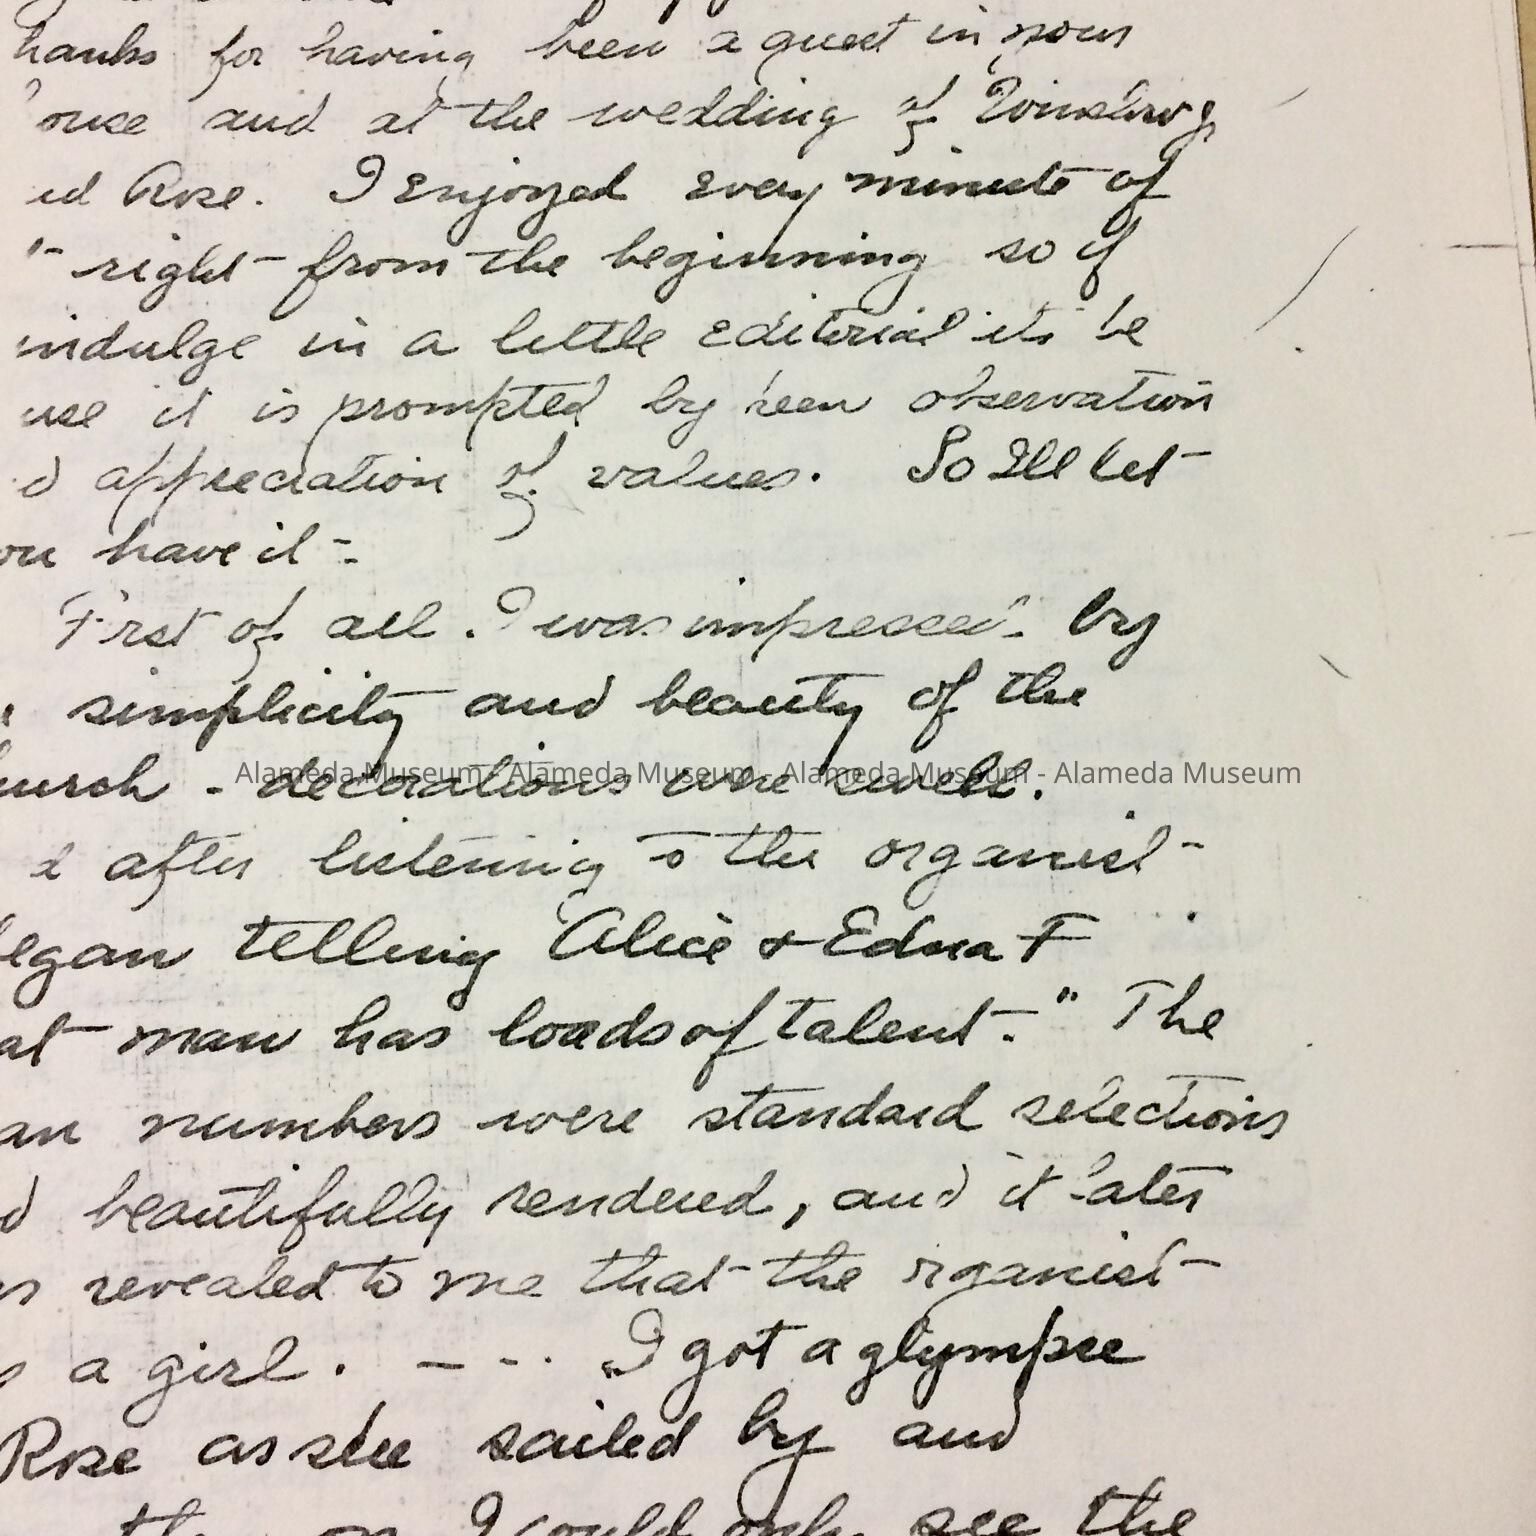 hanks for having been a guest in your
ouse and at the wedding of
ed Rose. I Enjoyed Every minute of
right from the beginning so if
indulge in a little Editorial its be
use it is prompted by keen observation
d appreciation of values. So Ill let
ou have it-.
First of all. I was impressed by
simplicity and beauty of the
hurch - decorations were swell.
d after listening to the organist-
began telling Alice & Edna F
at man has loads of talent." The
an numbers were standard selections
d beautifully rendered, and it later
s revealed to me that the organist
s a girl. - - - . I got a glympse
Rose as she sailed by and
I could only see the
Alameda Museum - Alameda Museum - Alameda Museum - Alameda Museum